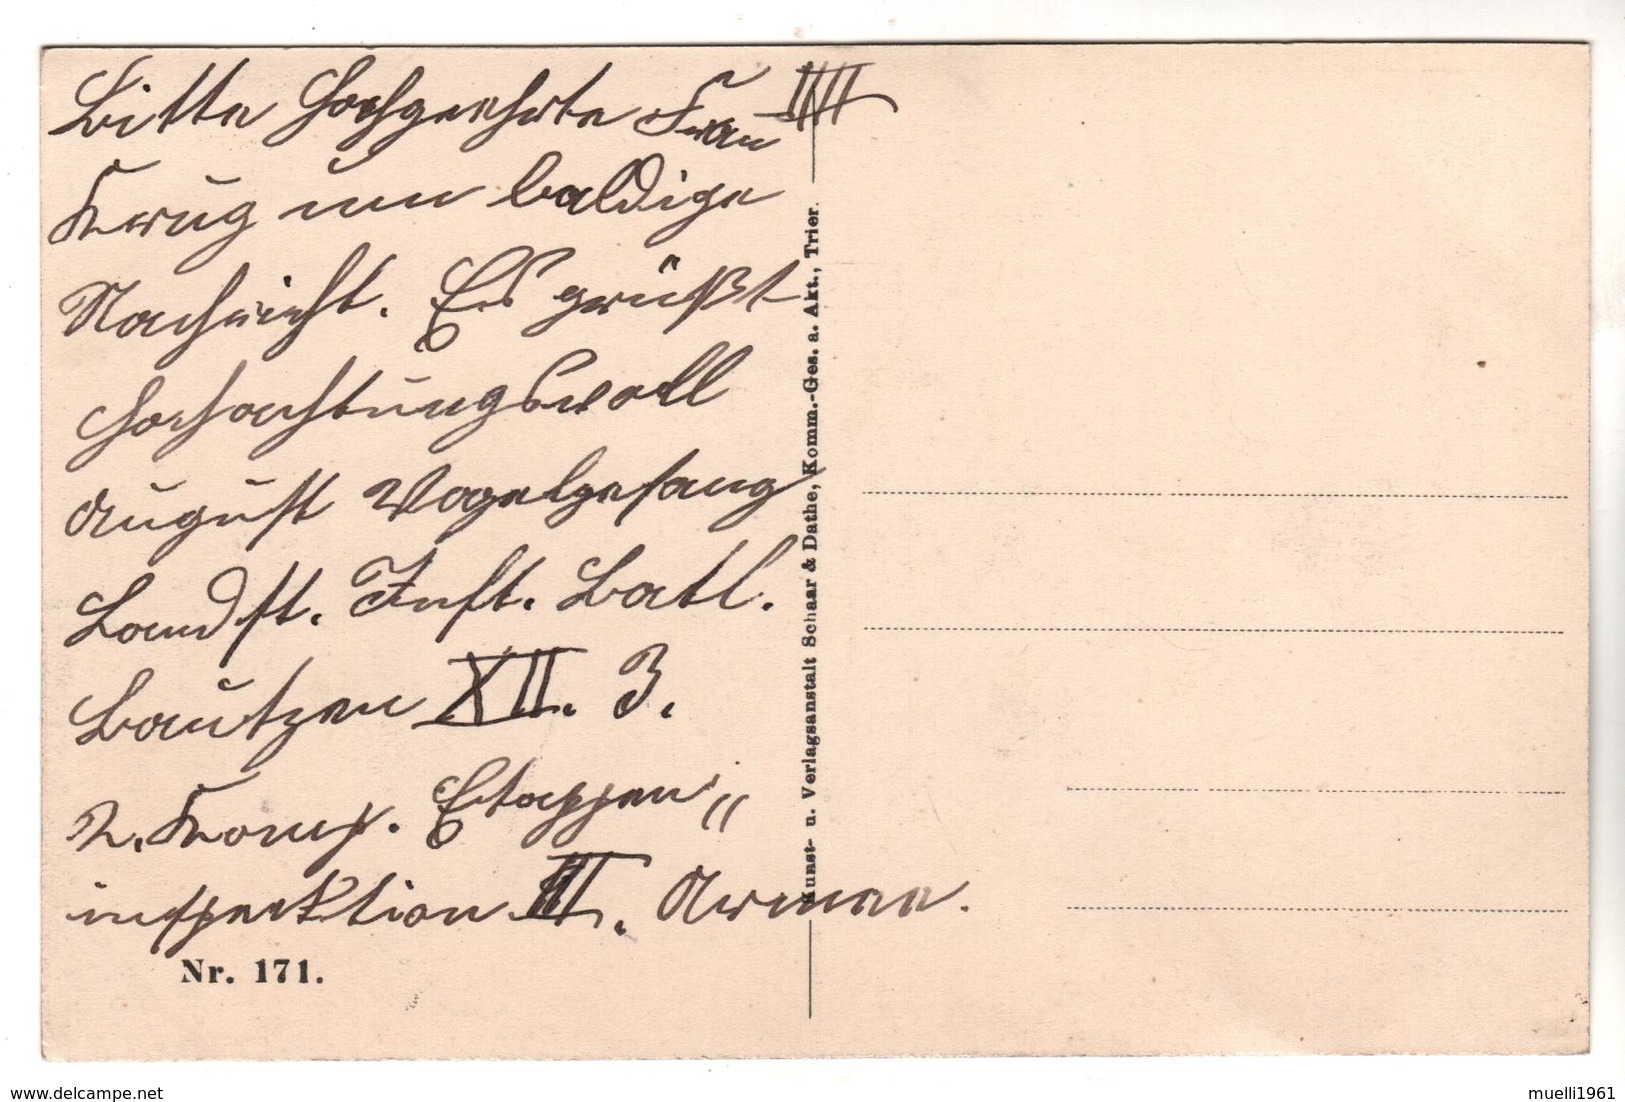 Bitte Hochgeehrte Frau
Krug um baldige
Nachricht. Es grüßt
Hochachtungsvoll
August Vogelgesang
Landst. Inft. Batl.
Bautzen XII. 3.
2. Komp. Etappen„
inspektion III. Armee.
Nr. 171.
Kunst- u. Verlagsanstalt Schaar & Dathe, Komm.-Ges. a. Akt., Trier.
delcampe.net
muelli1961